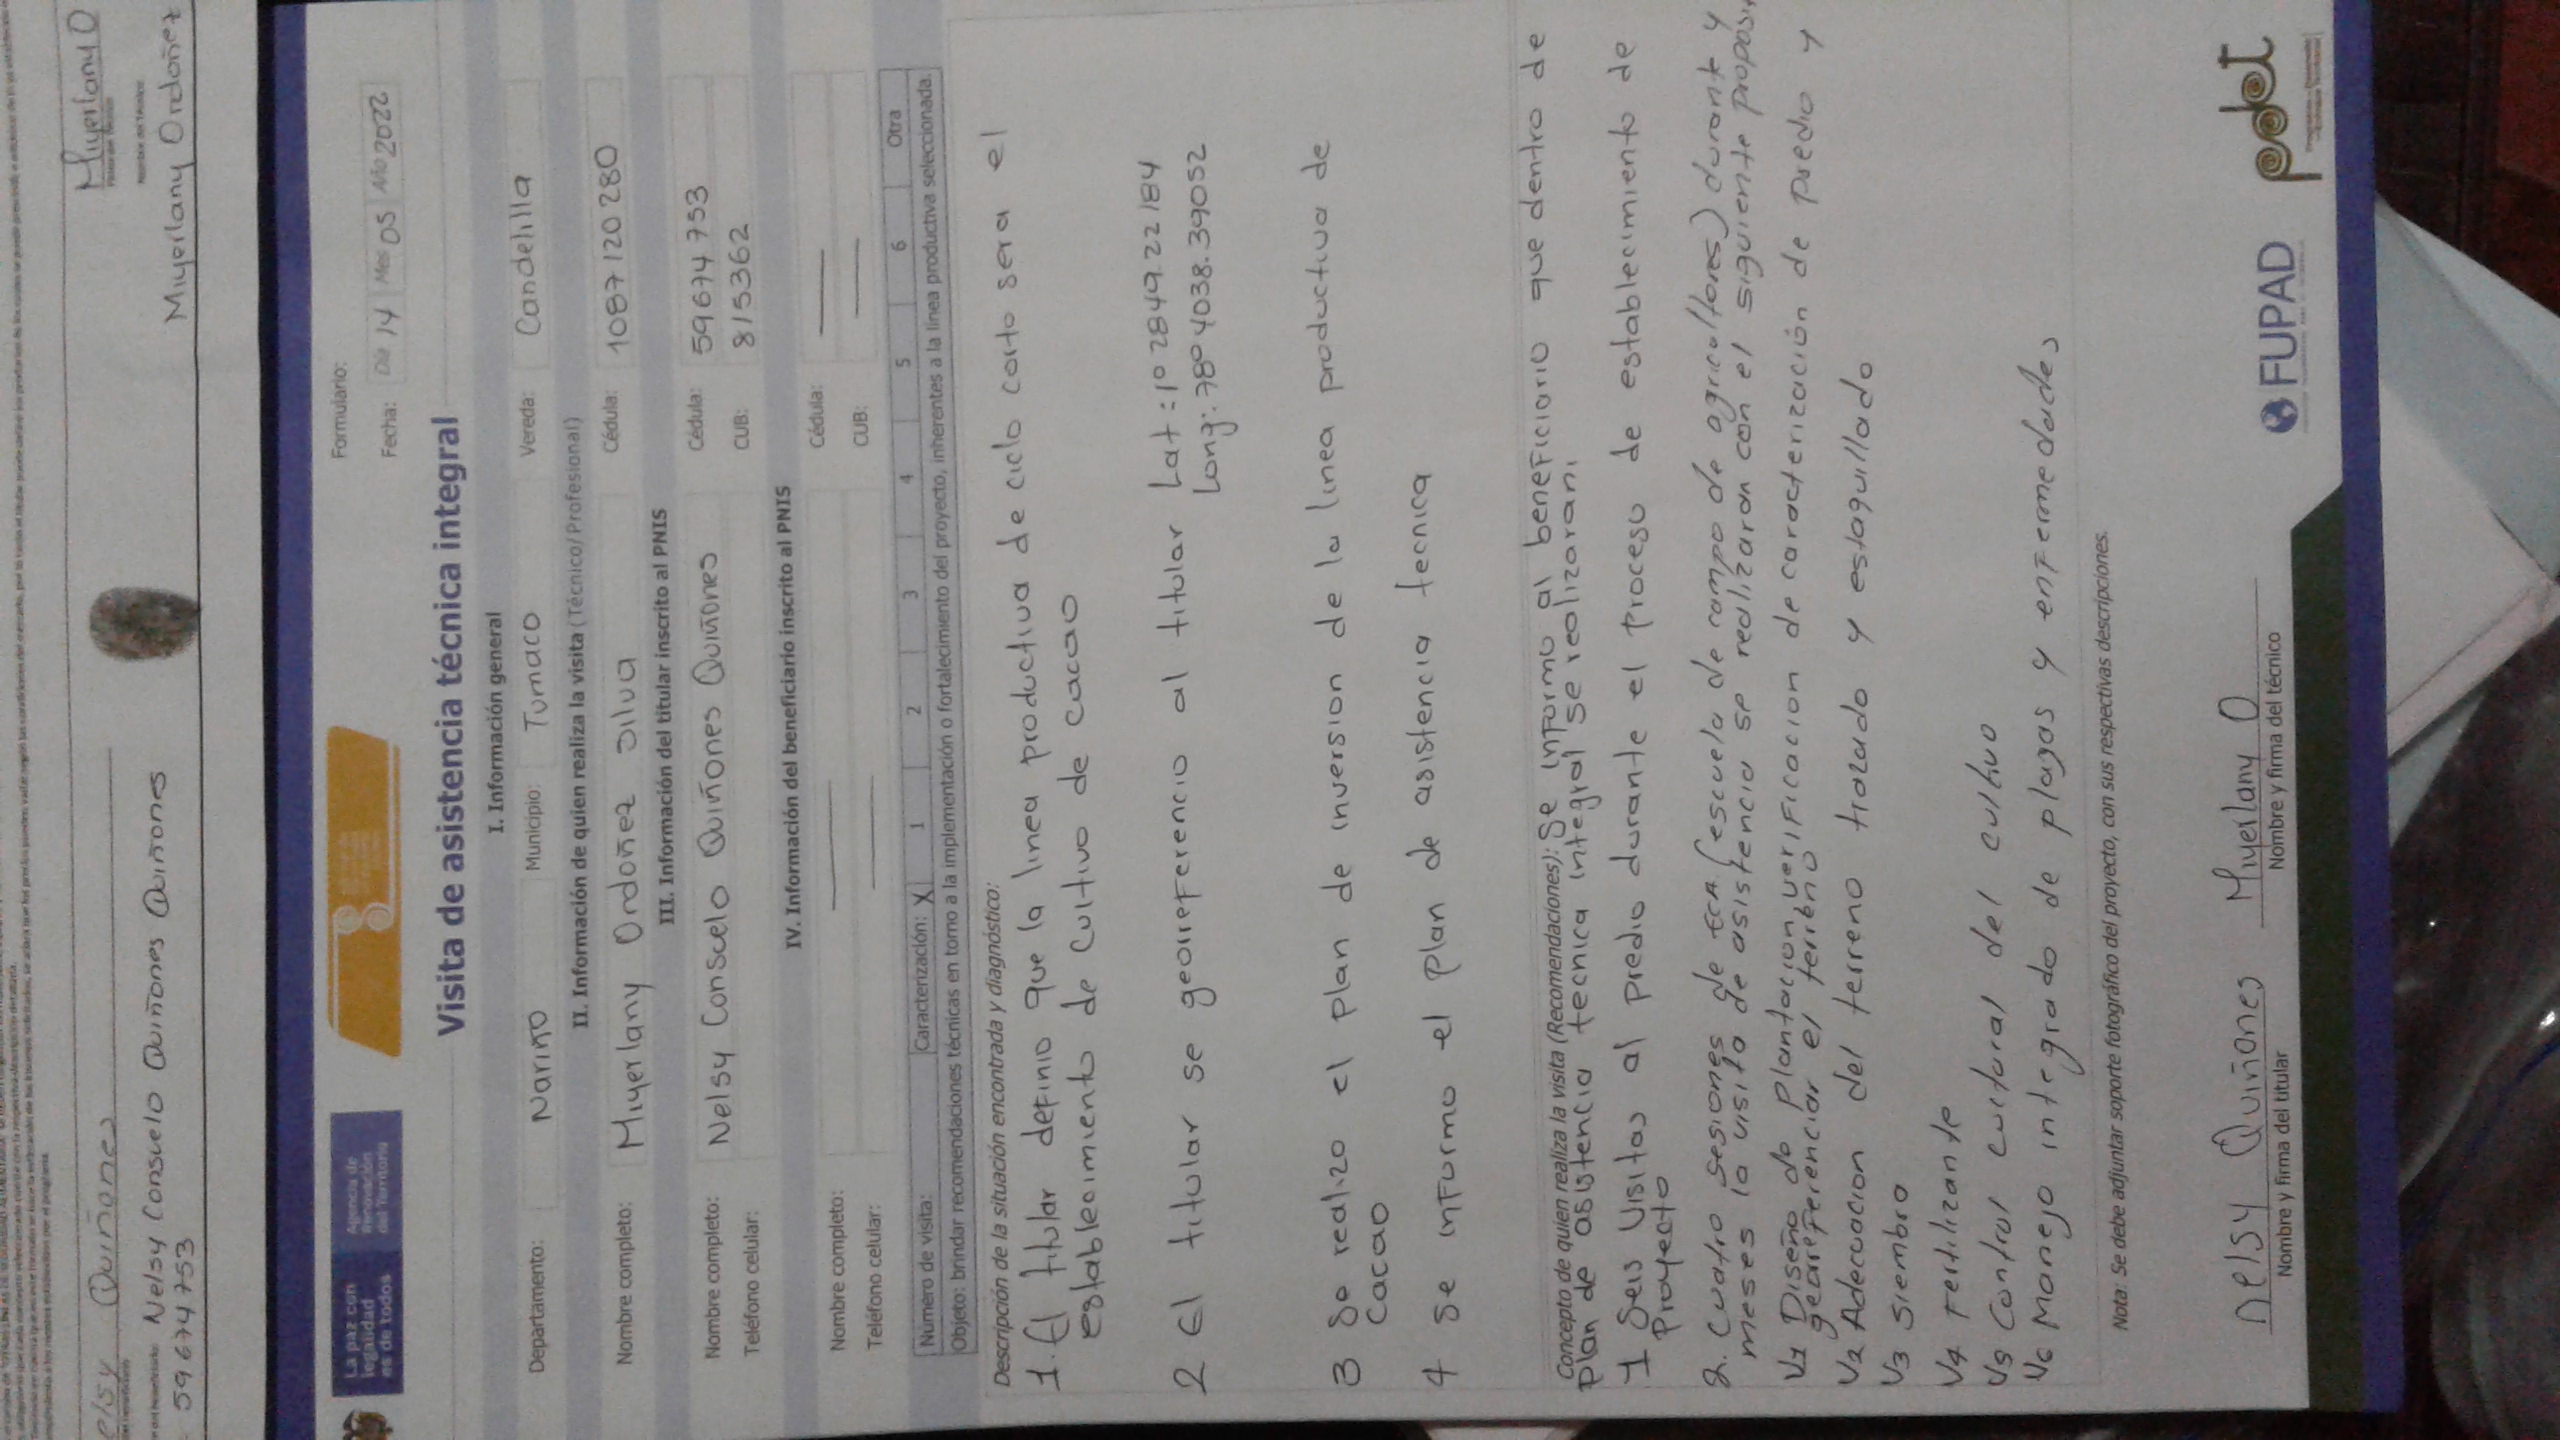 elsy Quiñones
Muyerlany O
Nelsy Consuelo Quiñones Quiñones
Muyerlany Ordoñez
59674753
La paz con
legalidad
es de todos
Agencia de
Renovación
del Territorio
Formulario:
Fecha: Día 14 Mes 05 Año 2022
Visita de asistencia técnica integral
I. Información general
Departamento: Nariño Municipio: Tumaco Vereda: Candelilla
II. Información de quien realiza la visita (Técnico/ Profesional)
Nombre completo: Muyerlany Ordoñez Silva Cédula: 1087120280
III. Información del titular inscrito al PNIS
Nombre completo: Nelsy Conscelo Quiñones Quiñones Cédula: 59674753
Teléfono celular: CUB: 815362
IV. Información del beneficiario inscrito al PNIS
Nombre completo: — Cédula: —
Teléfono celular: — CUB: —
Número de visita: Caracterización: X 1 2 3 4 5 6 Otra
Objeto: brindar recomendaciones técnicas en torno a la implementación o fortalecimiento del proyecto, inherentes a la línea productiva seleccionada.
Descripción de la situación encontrada y diagnóstico:
1. El titular definio que la linea productiva de ciclo corto sera el
establecimiento de cultivo de cacao
2 el titular se georreferencio al titular Lat: 1° 2849.22184
Long: 78° 4038.39052
3 So realizo el plan de inversion de la linea productiva de
cacao
4 se informo el plan de asistencia tecnica
Concepto de quien realiza la visita (Recomendaciones): Se informo al beneficiario que dentro de
plan de asistencia tecnica integral se realizaran:
1 Seis visitas al predio durante el proceso de establecimiento de
Proyecto
2. Cuatro sesiones de ECA (escuela de campo de agricultores) durante y
meses la visita de asistencia se realizaran con el siguiente proposi
V1 Diseño de plantacion, verificacion de caracterización de predio y
georeferenciar el terreno
V2 Adecuacion del terreno trazado y estaquillado
V3 siembra
V4 fertilizante
V5 Control cultural del cultivo
V6 Manejo integrado de plagas y enfermedades
Nota: Se debe adjuntar soporte fotográfico del proyecto, con sus respectivas descripciones.
Nelsy Quiñones Muyerlany O
Nombre y firma del titular Nombre y firma del técnico
FUPAD pdet